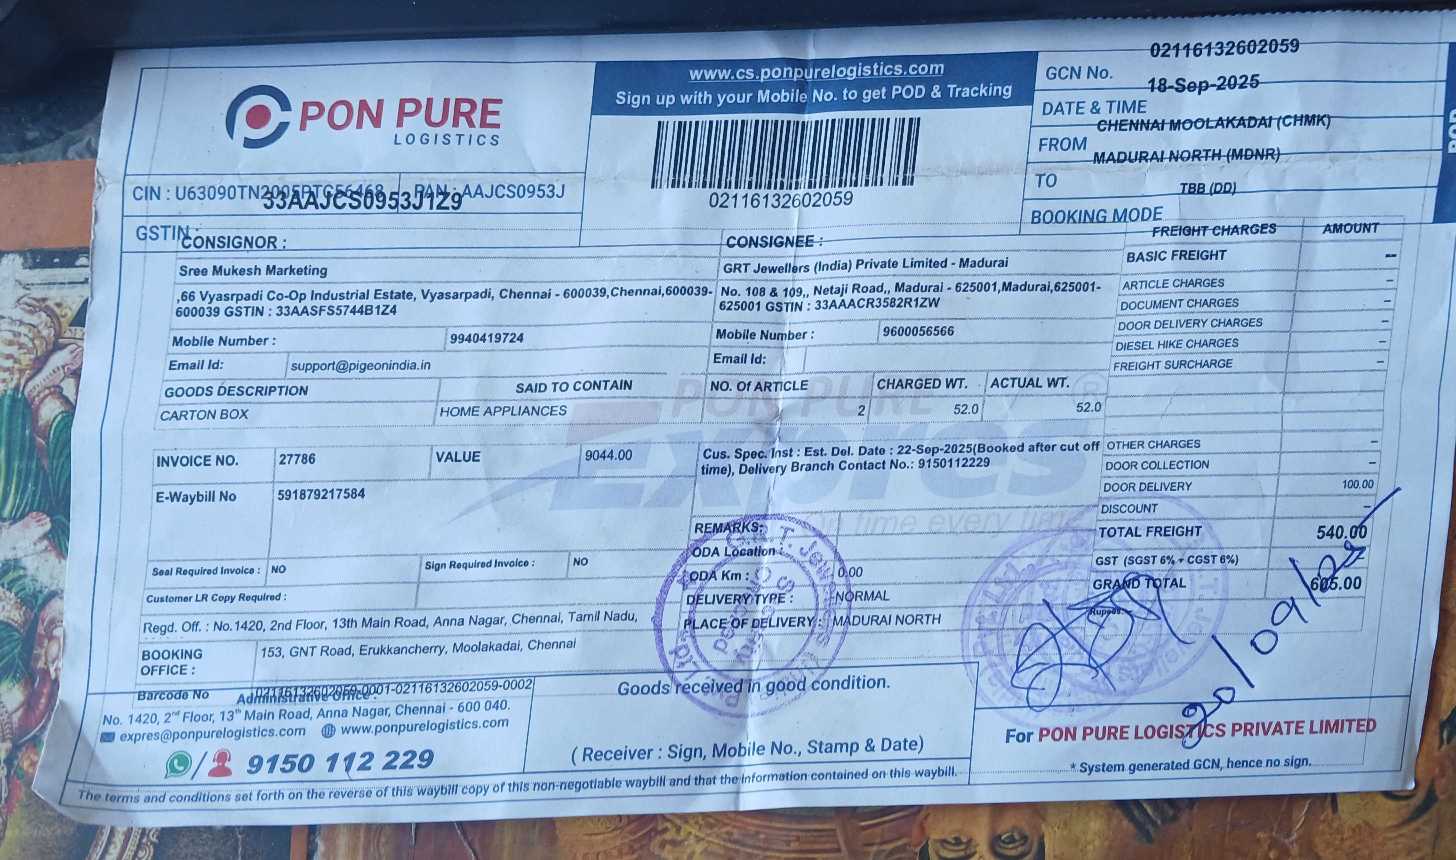 PON PURE
LOGISTICS
www.cs.ponpurelogistics.com
Sign up with your Mobile No. to get POD & Tracking
02116132602059
GCN No. 02116132602059
DATE & TIME 18-Sep-2025
FROM CHENNAI MOOLAKADAI (CHMK)
TO MADURAI NORTH (MDNR)
BOOKING MODE TBB (DD)
POD
CIN : PAN : AAJCS0953J
GSTIN : 33AAJCS0953J1Z9
CONSIGNOR :
Sree Mukesh Marketing
,66 Vyasrpadi Co-Op Industrial Estate, Vyasarpadi, Chennai - 600039,Chennai,600039-
600039 GSTIN : 33AASFS5744B1Z4
Mobile Number : 9940419724
Email Id: support@pigeonindia.in
CONSIGNEE :
GRT Jewellers (India) Private Limited - Madurai
No. 108 & 109,, Netaji Road,, Madurai - 625001,Madurai,625001-
625001 GSTIN : 33AAACR3582R1ZW
Mobile Number : 9600056566
Email Id:
GOODS DESCRIPTION SAID TO CONTAIN NO. Of ARTICLE CHARGED WT. ACTUAL WT.
CARTON BOX HOME APPLIANCES 2 52.0 52.0
INVOICE NO. 27786 VALUE 9044.00
E-Waybill No 591879217584
Cus. Spec. Inst : Est. Del. Date : 22-Sep-2025(Booked after cut off
time), Delivery Branch Contact No.: 9150112229
PON PURE
Expres
on time every time
Seal Required Invoice : NO Sign Required Invoice : NO
Customer LR Copy Required :
REMARKS:
ODA Location :
ODA Km : 0.00
DELIVERY TYPE : NORMAL
PLACE OF DELIVERY : MADURAI NORTH
FREIGHT CHARGES AMOUNT
BASIC FREIGHT --
ARTICLE CHARGES --
DOCUMENT CHARGES --
DOOR DELIVERY CHARGES --
DIESEL HIKE CHARGES --
FREIGHT SURCHARGE --
OTHER CHARGES --
DOOR COLLECTION --
DOOR DELIVERY 100.00
DISCOUNT --
TOTAL FREIGHT 540.00
GST (SGST 6% + CGST 6%)
GRAND TOTAL 605.00
Rupees:
20/09/25
Regd. Off. : No.1420, 2nd Floor, 13th Main Road, Anna Nagar, Chennai, Tamil Nadu,
BOOKING
OFFICE : 153, GNT Road, Erukkancherry, Moolakadai, Chennai
Barcode No 02116132602059-0001-02116132602059-0002
Administrative Office :
No. 1420, 2nd Floor, 13th Main Road, Anna Nagar, Chennai - 600 040.
expres@ponpurelogistics.com www.ponpurelogistics.com
9150 112 229
Goods received in good condition.
( Receiver : Sign, Mobile No., Stamp & Date)
For PON PURE LOGISTICS PRIVATE LIMITED
* System generated GCN, hence no sign.
The terms and conditions set forth on the reverse of this waybill copy of this non-negotiable waybill and that the information contained on this waybill.